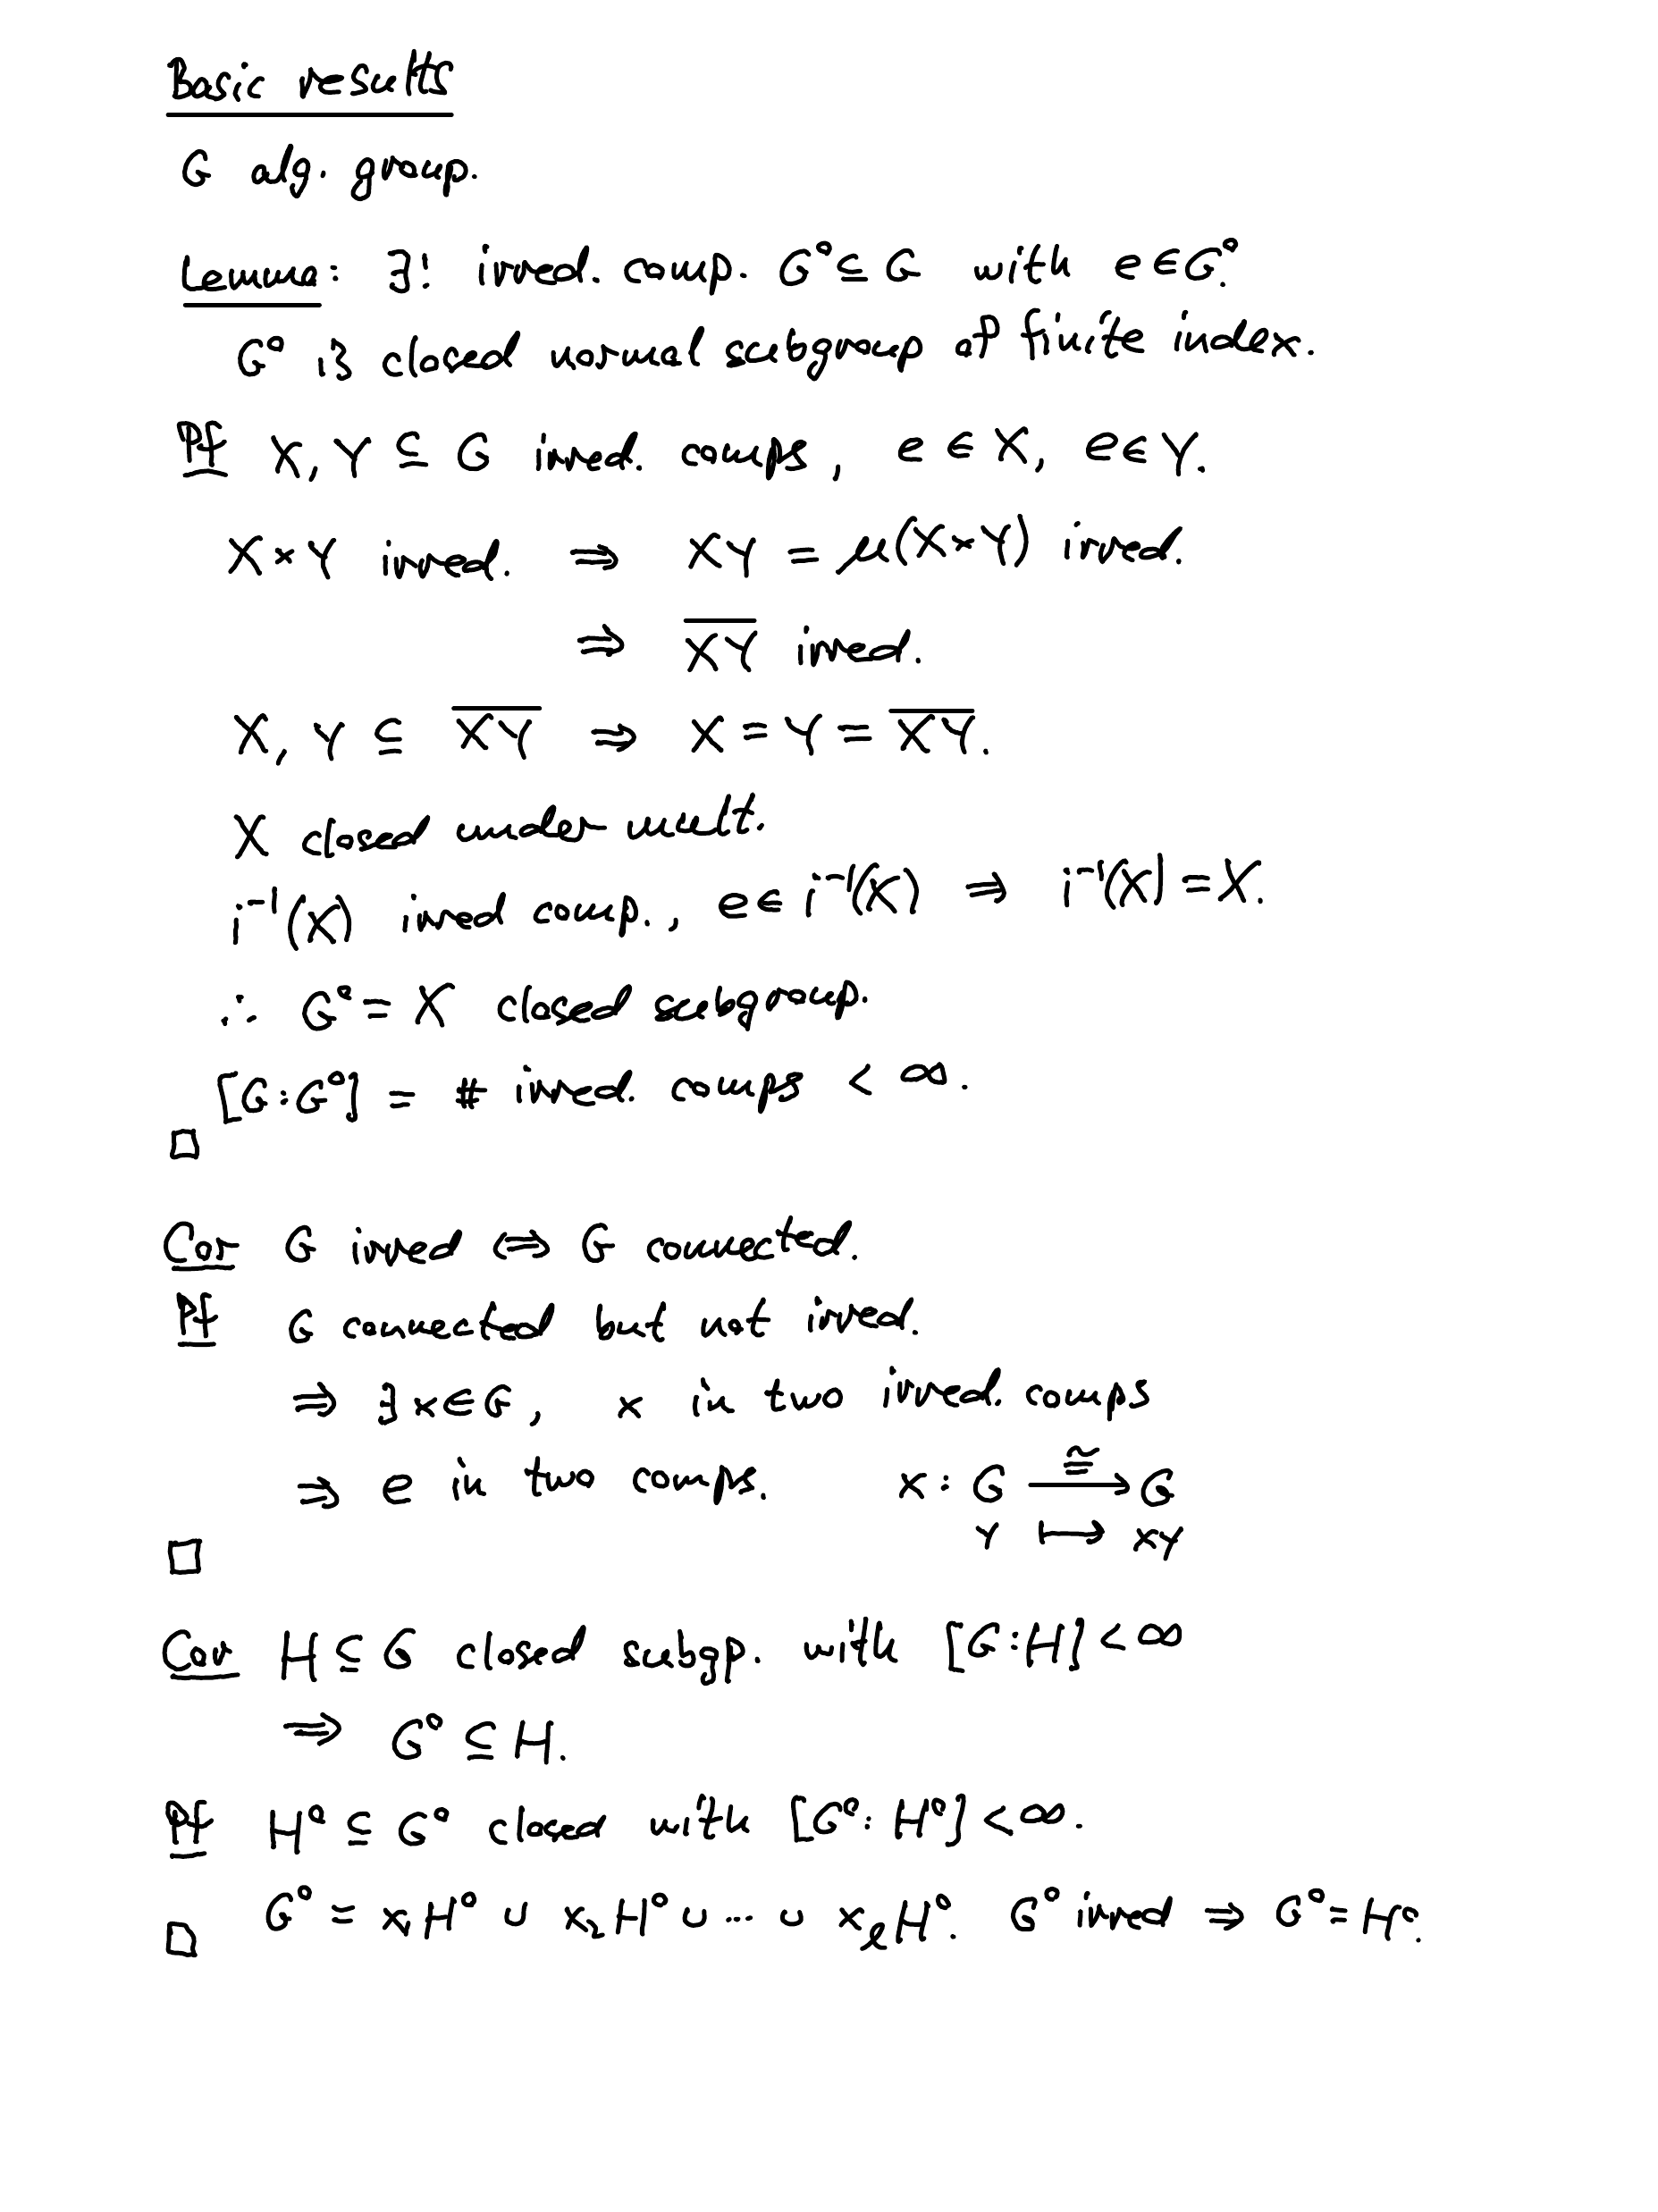 Basic results
G alg. group.
Lemma: ∃! irred. comp. G° ⊆ G with e ∈ G°.
G° is closed normal subgroup of finite index.
Pf X, Y ⊆ G irred. comps, e ∈ X, e ∈ Y.
X × Y irred. ⇒ XY = μ(X×Y) irred.
⇒ \overline{XY} irred.
X, Y ⊆ \overline{XY} ⇒ X = Y = \overline{XY}.
X closed under mult.
i⁻¹(X) irred comp., e ∈ i⁻¹(X) ⇒ i⁻¹(X) = X.
∴ G° = X closed subgroup.
[G : G°] = # irred. comps < ∞.
□
Cor G irred ⇔ G connected.
Pf G connected but not irred.
⇒ ∃ x ∈ G, x in two irred. comps
⇒ e in two comps. x : G \xrightarrow{≅} G
y ↦ xy
□
Cor H ⊆ G closed subgp. with [G : H] < ∞
⇒ G° ⊆ H.
Pf H° ⊆ G° closed with [G° : H°] < ∞.
□ G° = x₁H° ∪ x₂H° ∪ ... ∪ x_ℓH°. G° irred ⇒ G° = H°.